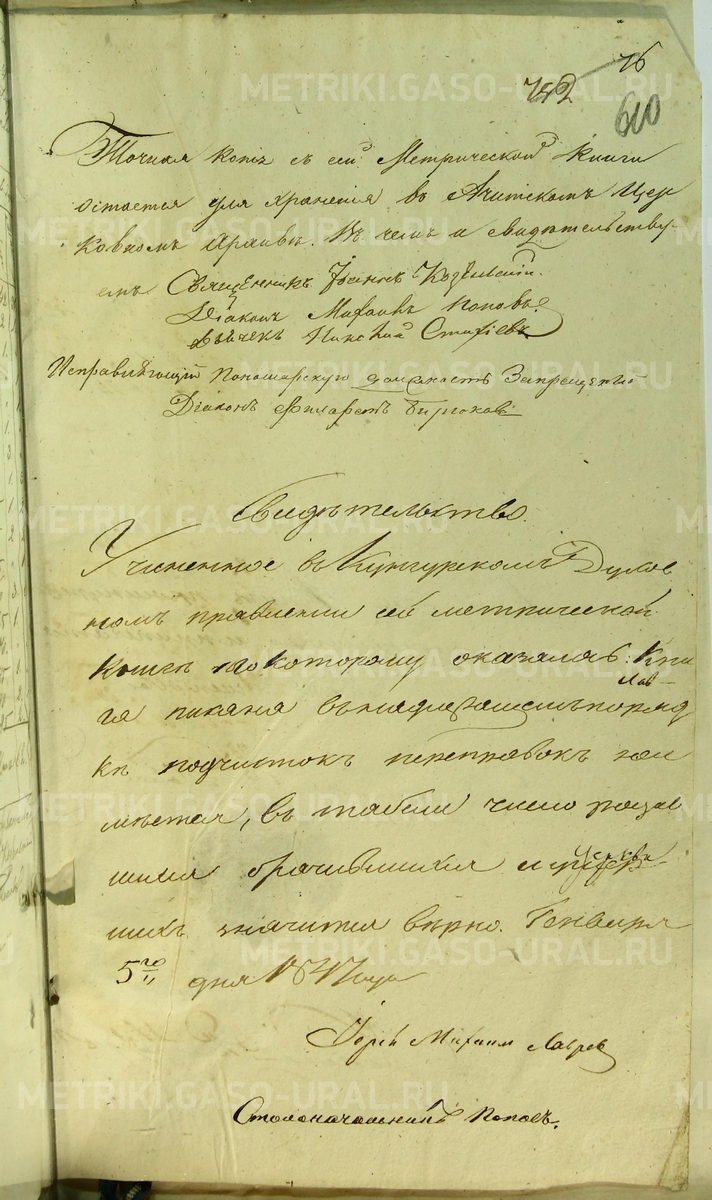 76
752
600
METRIKI.GASO-URAL.RU
Точная копiя съ сей Метрической Книги
остается для храненiя въ Ачитскомъ Цер
ковномъ архивѣ. Въ чемъ и свидѣтельству
емъ Священникъ Iоаннъ
Дiаконъ Михаилъ Поповъ
Дьячекъ
Исправляющiй Пономарскую должность Запрещенный
Дiаконъ Филаретъ Бирюковъ
Свидѣтельство.
Учиненное въ Кунгурскомъ Духов
номъ правленiи сей метрической
книгѣ по которому оказалась: Кни
га писана въ надлежащемъ поряд
кѣ подчистокъ переправокъ неи
мѣется, въ табели число родив
шихся брачившихся и умер
шихъ значится вѣрно. Генваря
5го дня 1847 года
Iерей Михаилъ Лавровъ
Столоначальникъ Поповъ.